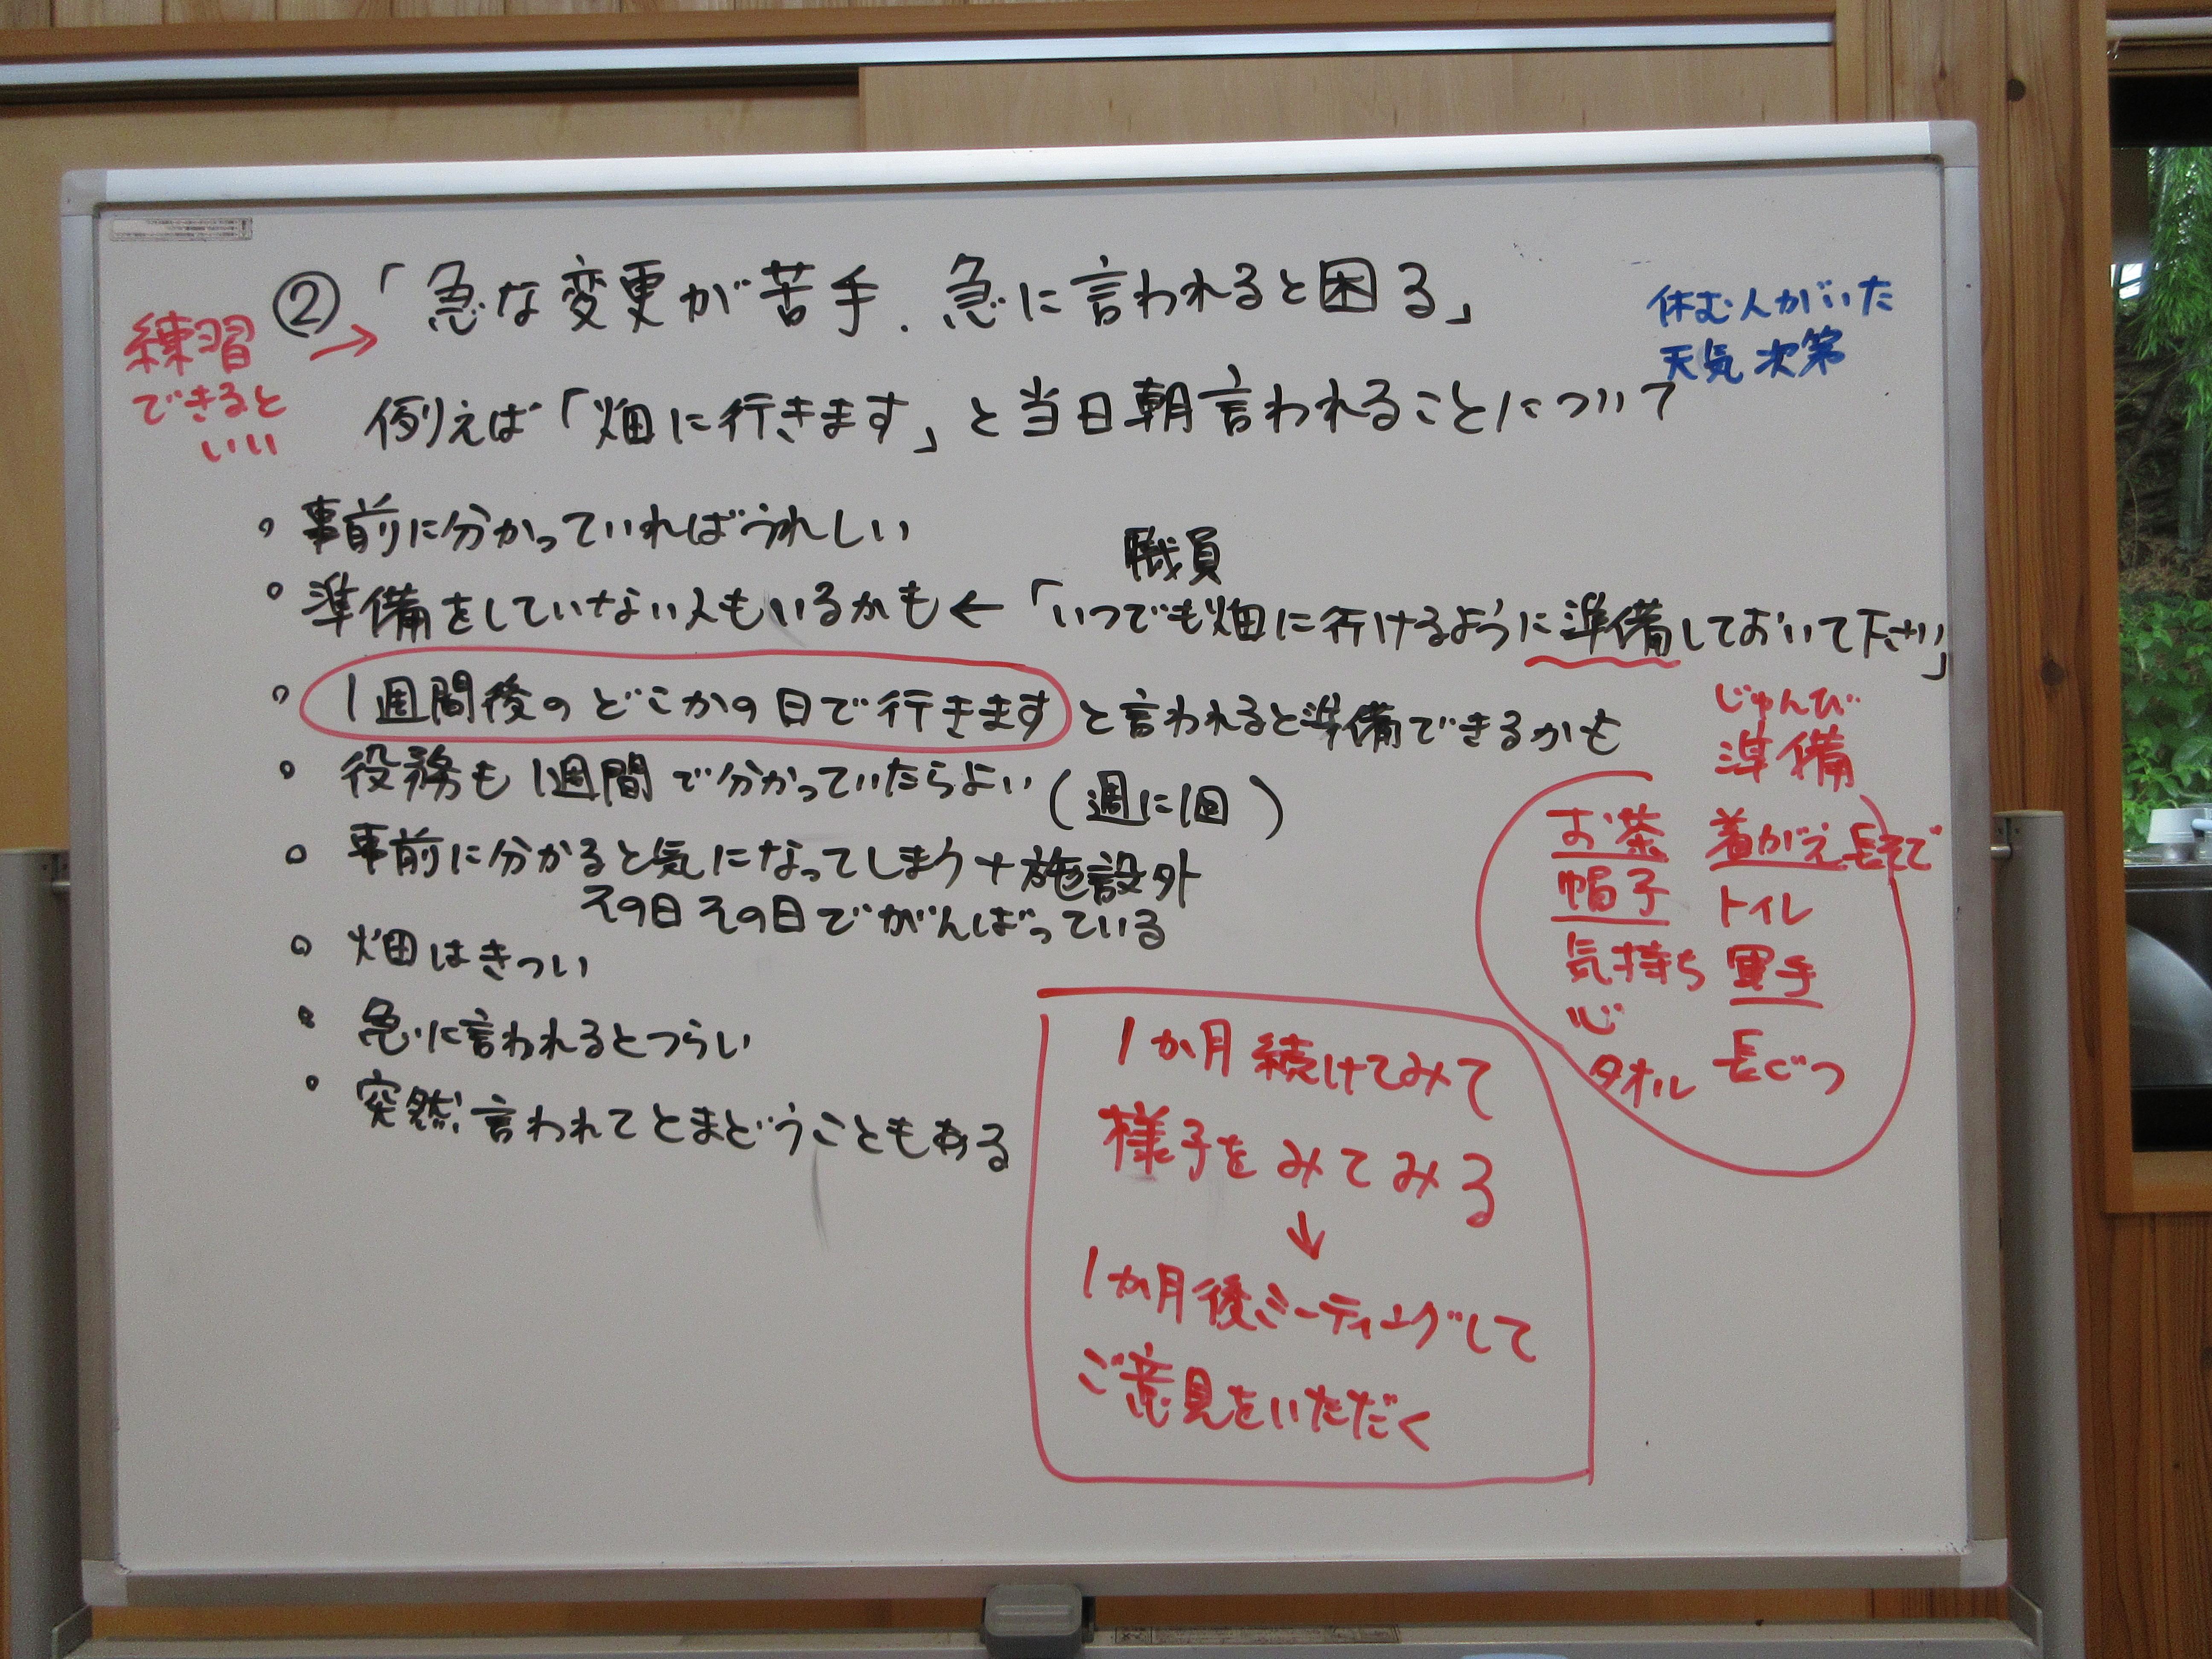 ②「急な変更が苦手、急に言われると困る」
練習
できると
いい
→
休む人がいた
天気次第
例えば「畑に行きます」と当日朝言われることについて
。事前に分かっていればうれしい
職員
。準備をしていない人もいるかも←「いつでも畑に行けるように準備しておいて下さい」
。1週間後のどこかの日で行きますと言われると準備できるかも
。役務も1週間で分かっていたらよい(週に1回)
。事前に分かると気になってしまう+施設外
その日その日でがんばっている
。畑はきつい
。急に言われるとつらい
。突然言われてとまどうこともある
じゅんび
準備
お茶 着がえ長そで
帽子 トイレ
気持ち 軍手
心
タオル 長ぐつ
1か月続けてみて
様子をみてみる
↓
1か月後ミーティングして
ご意見をいただく